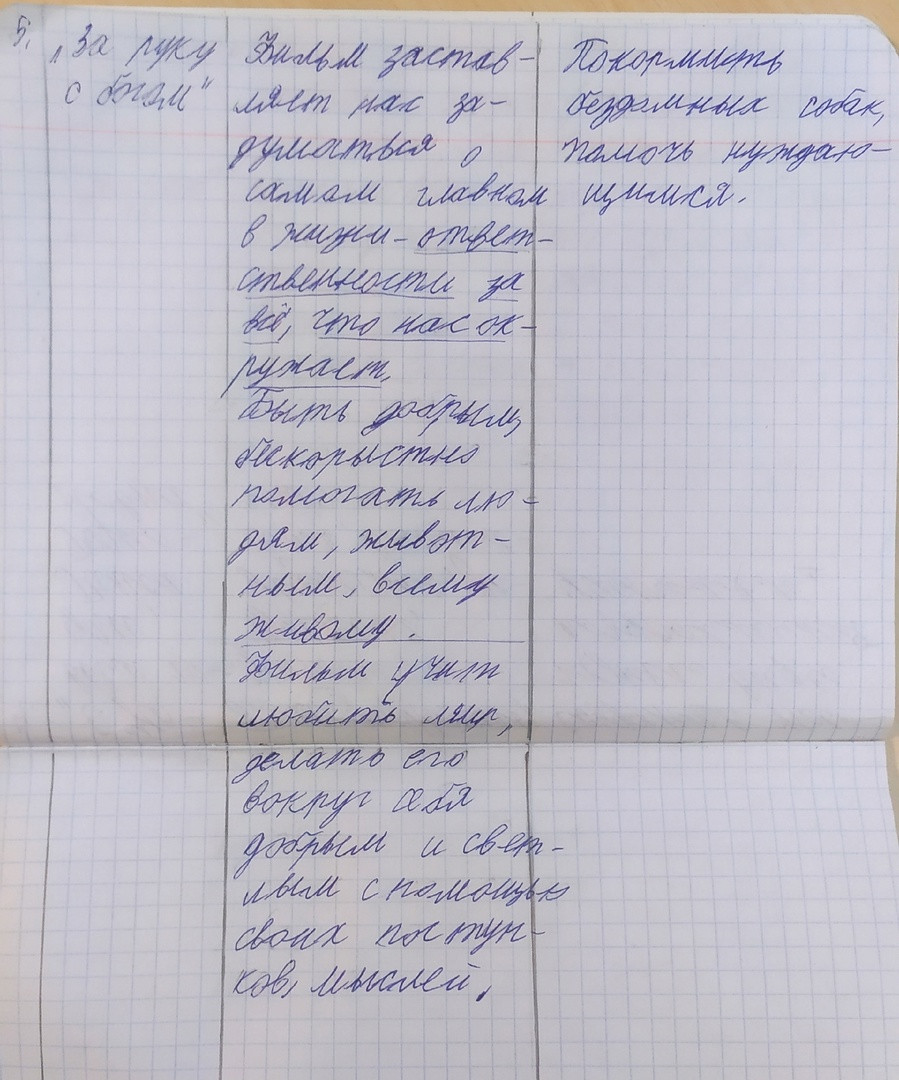 5.
„За руку
с богом"
Фильм застав-
ляет нас за-
думаться о
самом главном
в жизни - ответ-
ственности за
всё, что нас ок-
ружает.
Быть добрым,
бескорыстно
помогать лю-
дям, живот-
ным, всему
живому.
Фильм учит
любить мир,
делать его
вокруг себя
добрым и свет-
лым с помощью
своих поступ-
ков, мыслей.
Покормить
бездомных собак,
помочь нуждаю-
щимся.